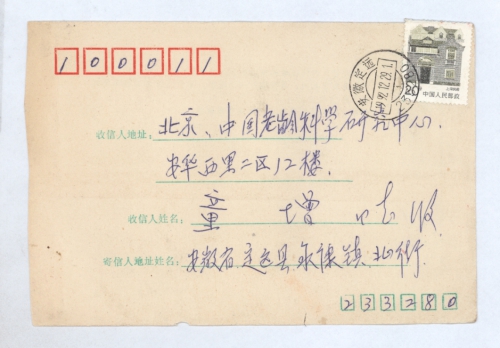 100011
20
中国人民邮政
安徽定远
收信人地址: 北京、中国老龄科学研究中心
安华西里二区12楼.
收信人姓名: 童 增 收
寄信人地址姓名: 安徽省定远县永康镇北街
233280